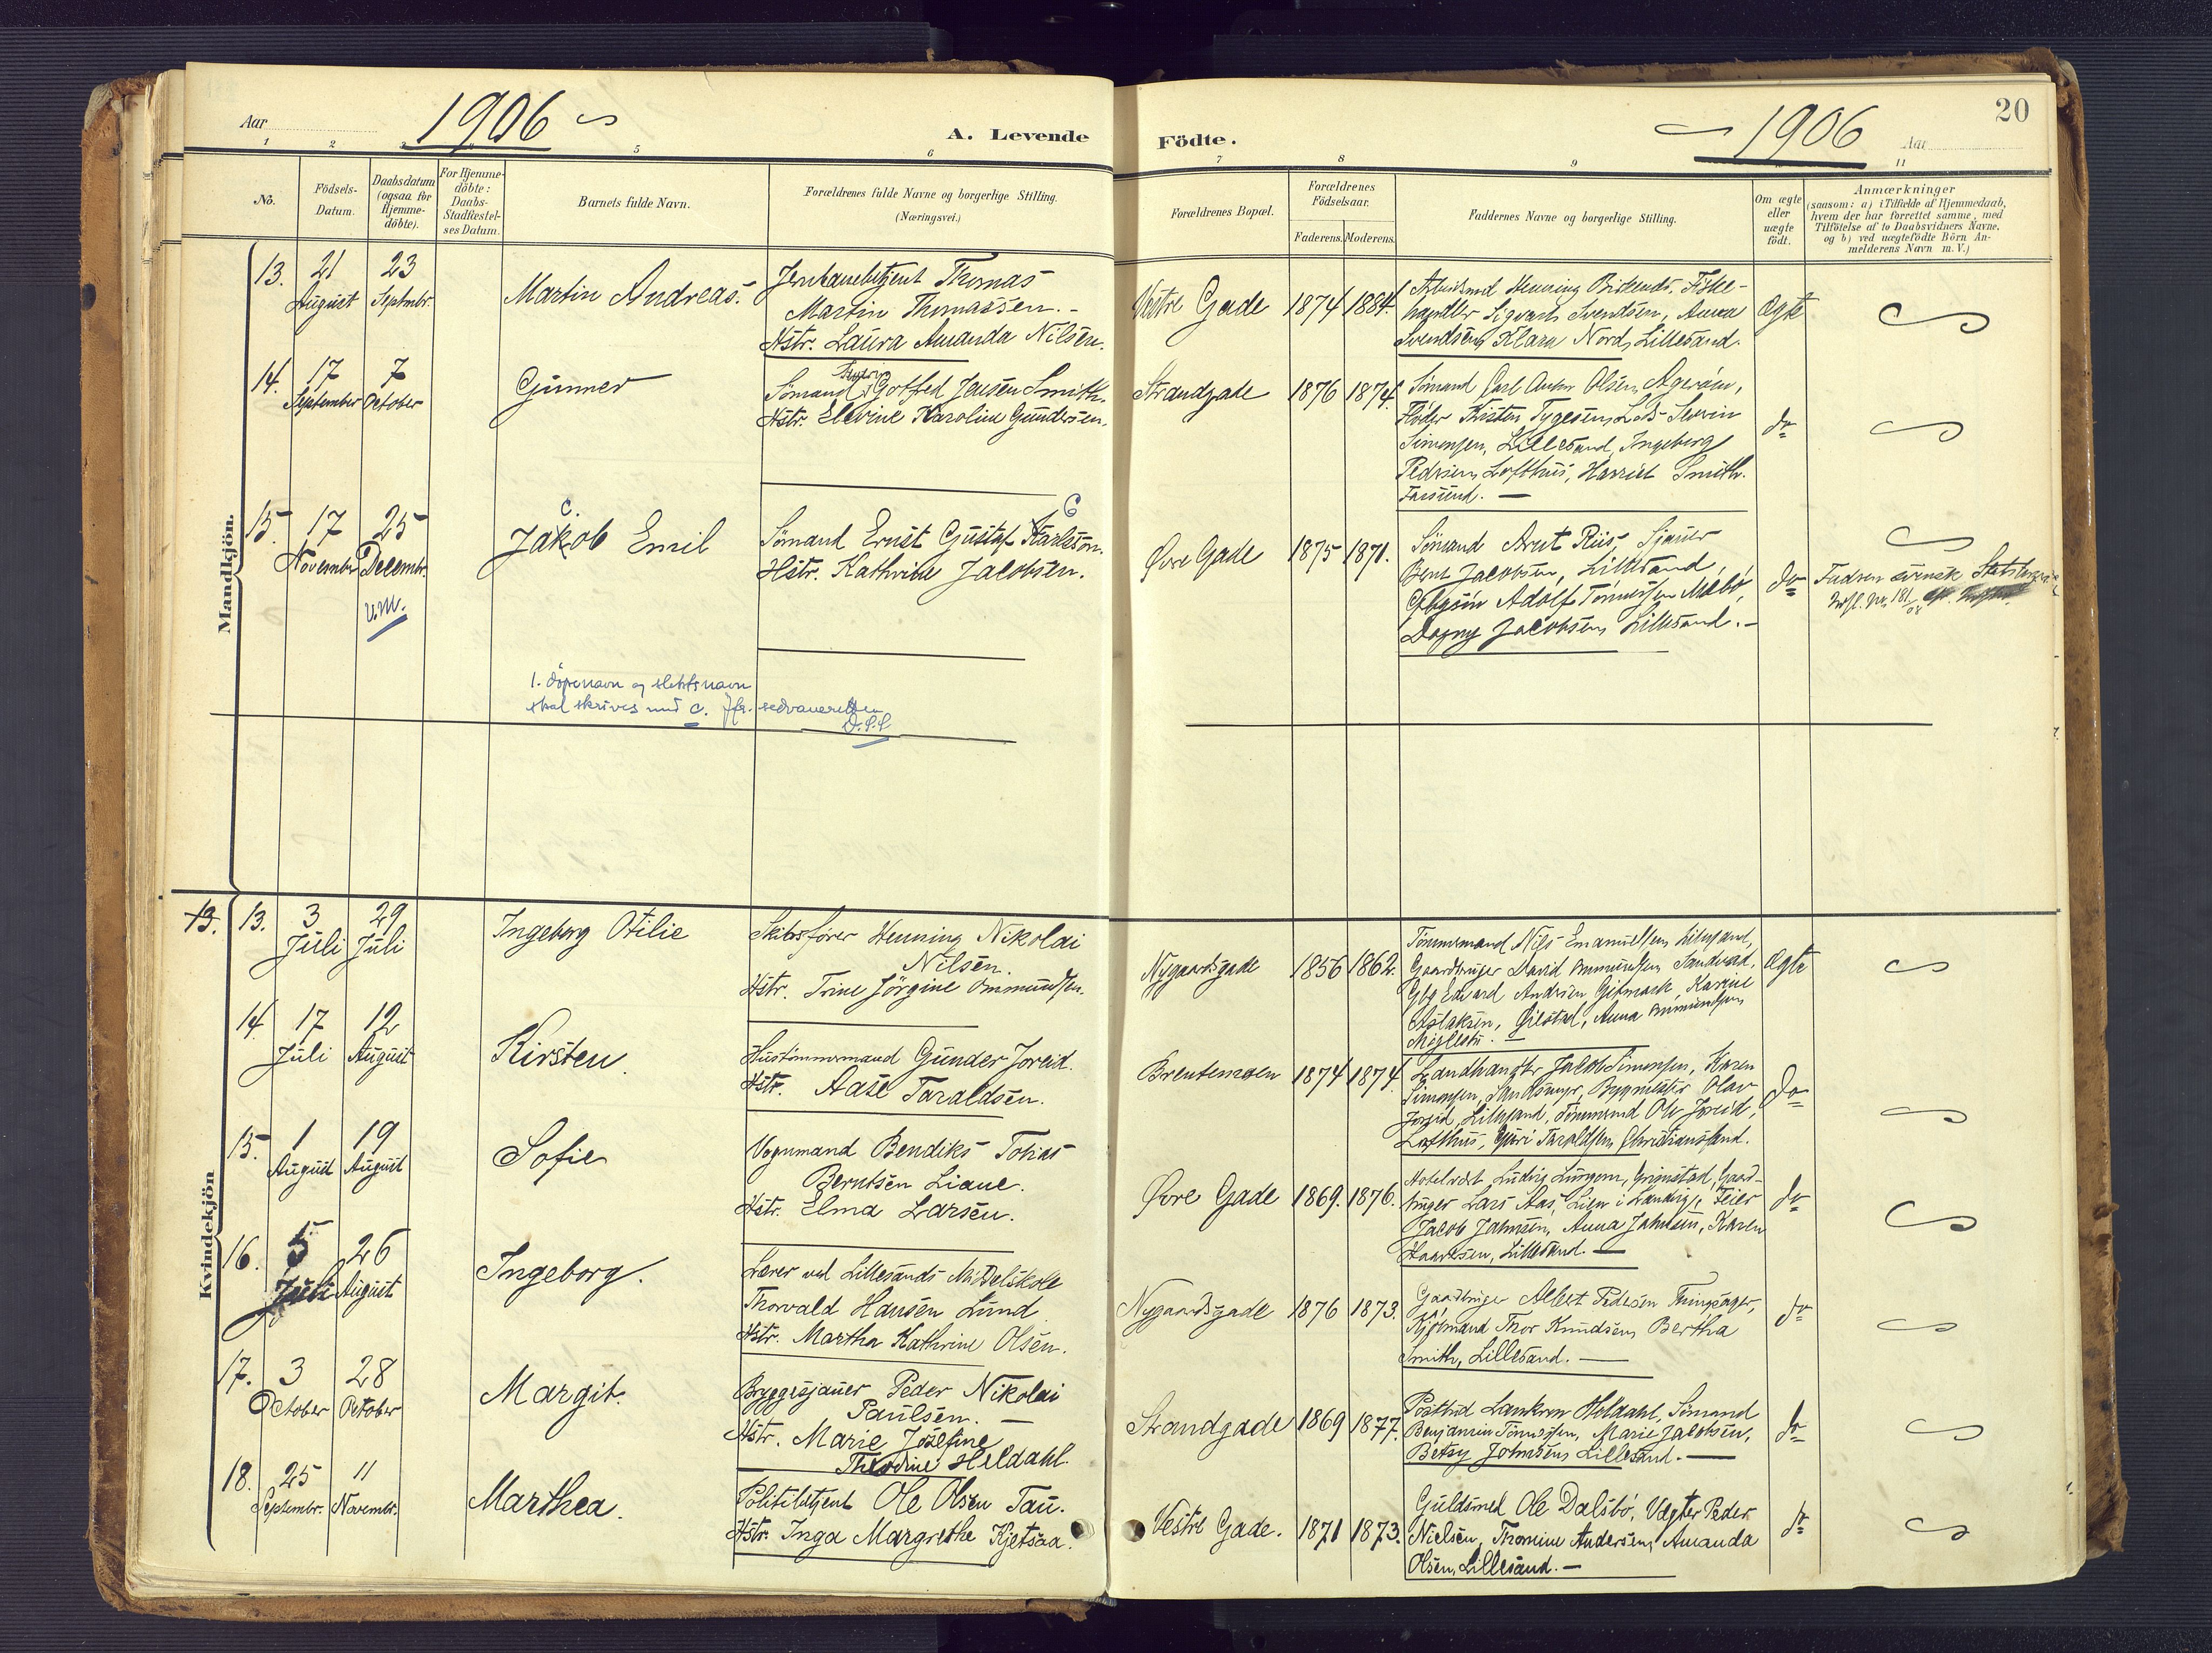 Aar 1906
A. Levende
Födte.
1906 Aar
20
1 2 3 5 6 7 8 9 11
No.
Födsels-Datum.
Daabsdatum (ogsaa for Hjemmedöbte).
For Hjemmedöbte: Daabs-Stadfæstelses Datum.
Barnets fulde Navn.
Forældrenes fulde Navne og borgerlige Stilling. (Næringsvei.)
Forældrenes Bopæl.
Forældrenes Födselsaar.
Faderens. Moderens.
Faddernes Navne og borgerlige Stilling.
Om ægte eller uægte födt.
Anmærkninger
(saasom: a) i Tilfælde af Hjemmedaab, hvem der har forrettet samme, med Tilföielse af to Daabsvidners Navne, og b) ved uægtefödte Börn Anmelderens Navn m. V.)
Mandkjön.
13. 21 August 23 Septmbr. Martin Andreas.
Jernbanebetjent Thomas
Martin Thomassen.
Hstr. Laura Amanda Nilsen.
Vestre Gade 1874 1884.
Henning Fiske-
handler Sigvart Svendsen, Anna
Svendsen, Klara Nord, Lillesand.
Ægte
14. 17 September 7 October Gunner
Sømand Gotfred Jensen Smith.
Hstr. Elevine Karoline Gundersen.
Strandgade 1876 1874.
Sømand Carl Anton Olsen, Agerøen,
Kristen Tygesen, Lods Severin
Simonsen, Lillesand, Ingeborg
Pedersen, Lofthus, Harriet Smith.
Farsund.
do
15. 17 November 25 Decembr. Jakob Emil
c.
v.m.
Sømand Ernst Gustaf Karlsson.
C
Hstr. Kathrine Jacobsen.
Øvre Gade 1875 1871.
Sømand Arnt Riis, Sjauer
Bent Jacobsen, Lillesand,
Adolf Tønnessen Møbø,
Dagny Jacobsen, Lillesand.
do
Faderen svensk Statsborger
1. døpenavn og slektsnavn
skal skrives med c. Jfr. sedvaneretten
D.S.S
Kvindekjön
13. 13. 3 Juli 29 Juli Ingeborg Otilie
Skibsfører Henning Nikolai
Nilsen.
Hstr. Trine Jörgine Ommundsen.
Nygaardsgade 1856 1862.
Tömmermand Nils Emanuelsen, Lillesand,
Gaardbruger David Ommundsen Sandvad,
Gbg Edvard Andersen Gitmark, Karine
Aslaksen, Anna Ommundsen
Møglestu.
Ægte
14. 17 Juli 12 August Kirsten.
Hustömmermand Gunder Joreid.
Hstr. Aase Taraldsen.
Brentemoen 1874 1874.
Landhandler Jacob Simonsen, Karen
Simonsen, Bygmester Olav
Joreid, Lillesand, Tömmermd Ole Joreid,
Lofthus, Guri Taraldsen, Christianssand.
do
15. 1 August 19 August Sofie
Vognmand Bendiks Tobias
Berntsen Liane.
Hstr. Elma Larsen.
Øvre Gade 1869. 1876.
Hotelvært Ludvig Grimstad, Gaard-
bruger Lars Aas, Lien i Landvig, Feier
Jacob Jahnsen, Anna Jahnsen, Karen
Lillesand.
do
16. 5 Juli 26 August Ingeborg.
Lærer ved Lillesands Middelskole
Thorvald Hansen Lund
Hstr. Martha Kathrine Olsen.
Nygaardsgade 1876 1873.
Gaardbruger Albert Pedersen Thingsager,
Kjøbmand Thor Knudsen, Bertha
Smith, Lillesand.
do
17. 3 October 28 October Margit.
Bryggesjauer Peder Nikolai
Paulsen.
Hstr. Marie Josefine
Theodine Heldahl.
Strandgade 1869 1877.
Postbud Heldahl, Sömand
Benjamin Tönnessen, Marie Jacobsen,
Betsy Johnsen, Lillesand.
do
18. 25 Septembr. 11 Novembr. Marthea.
Politibetjent Ole Olsen Tau.
Hstr. Inga Margrethe Kjetsaa.
Vestre Gade. 1871 1873.
Guldsmed Ole Dalsbø, Vægter Peder
Nielsen, Thomine Andersen, Amanda
Olsen, Lillesand.
do